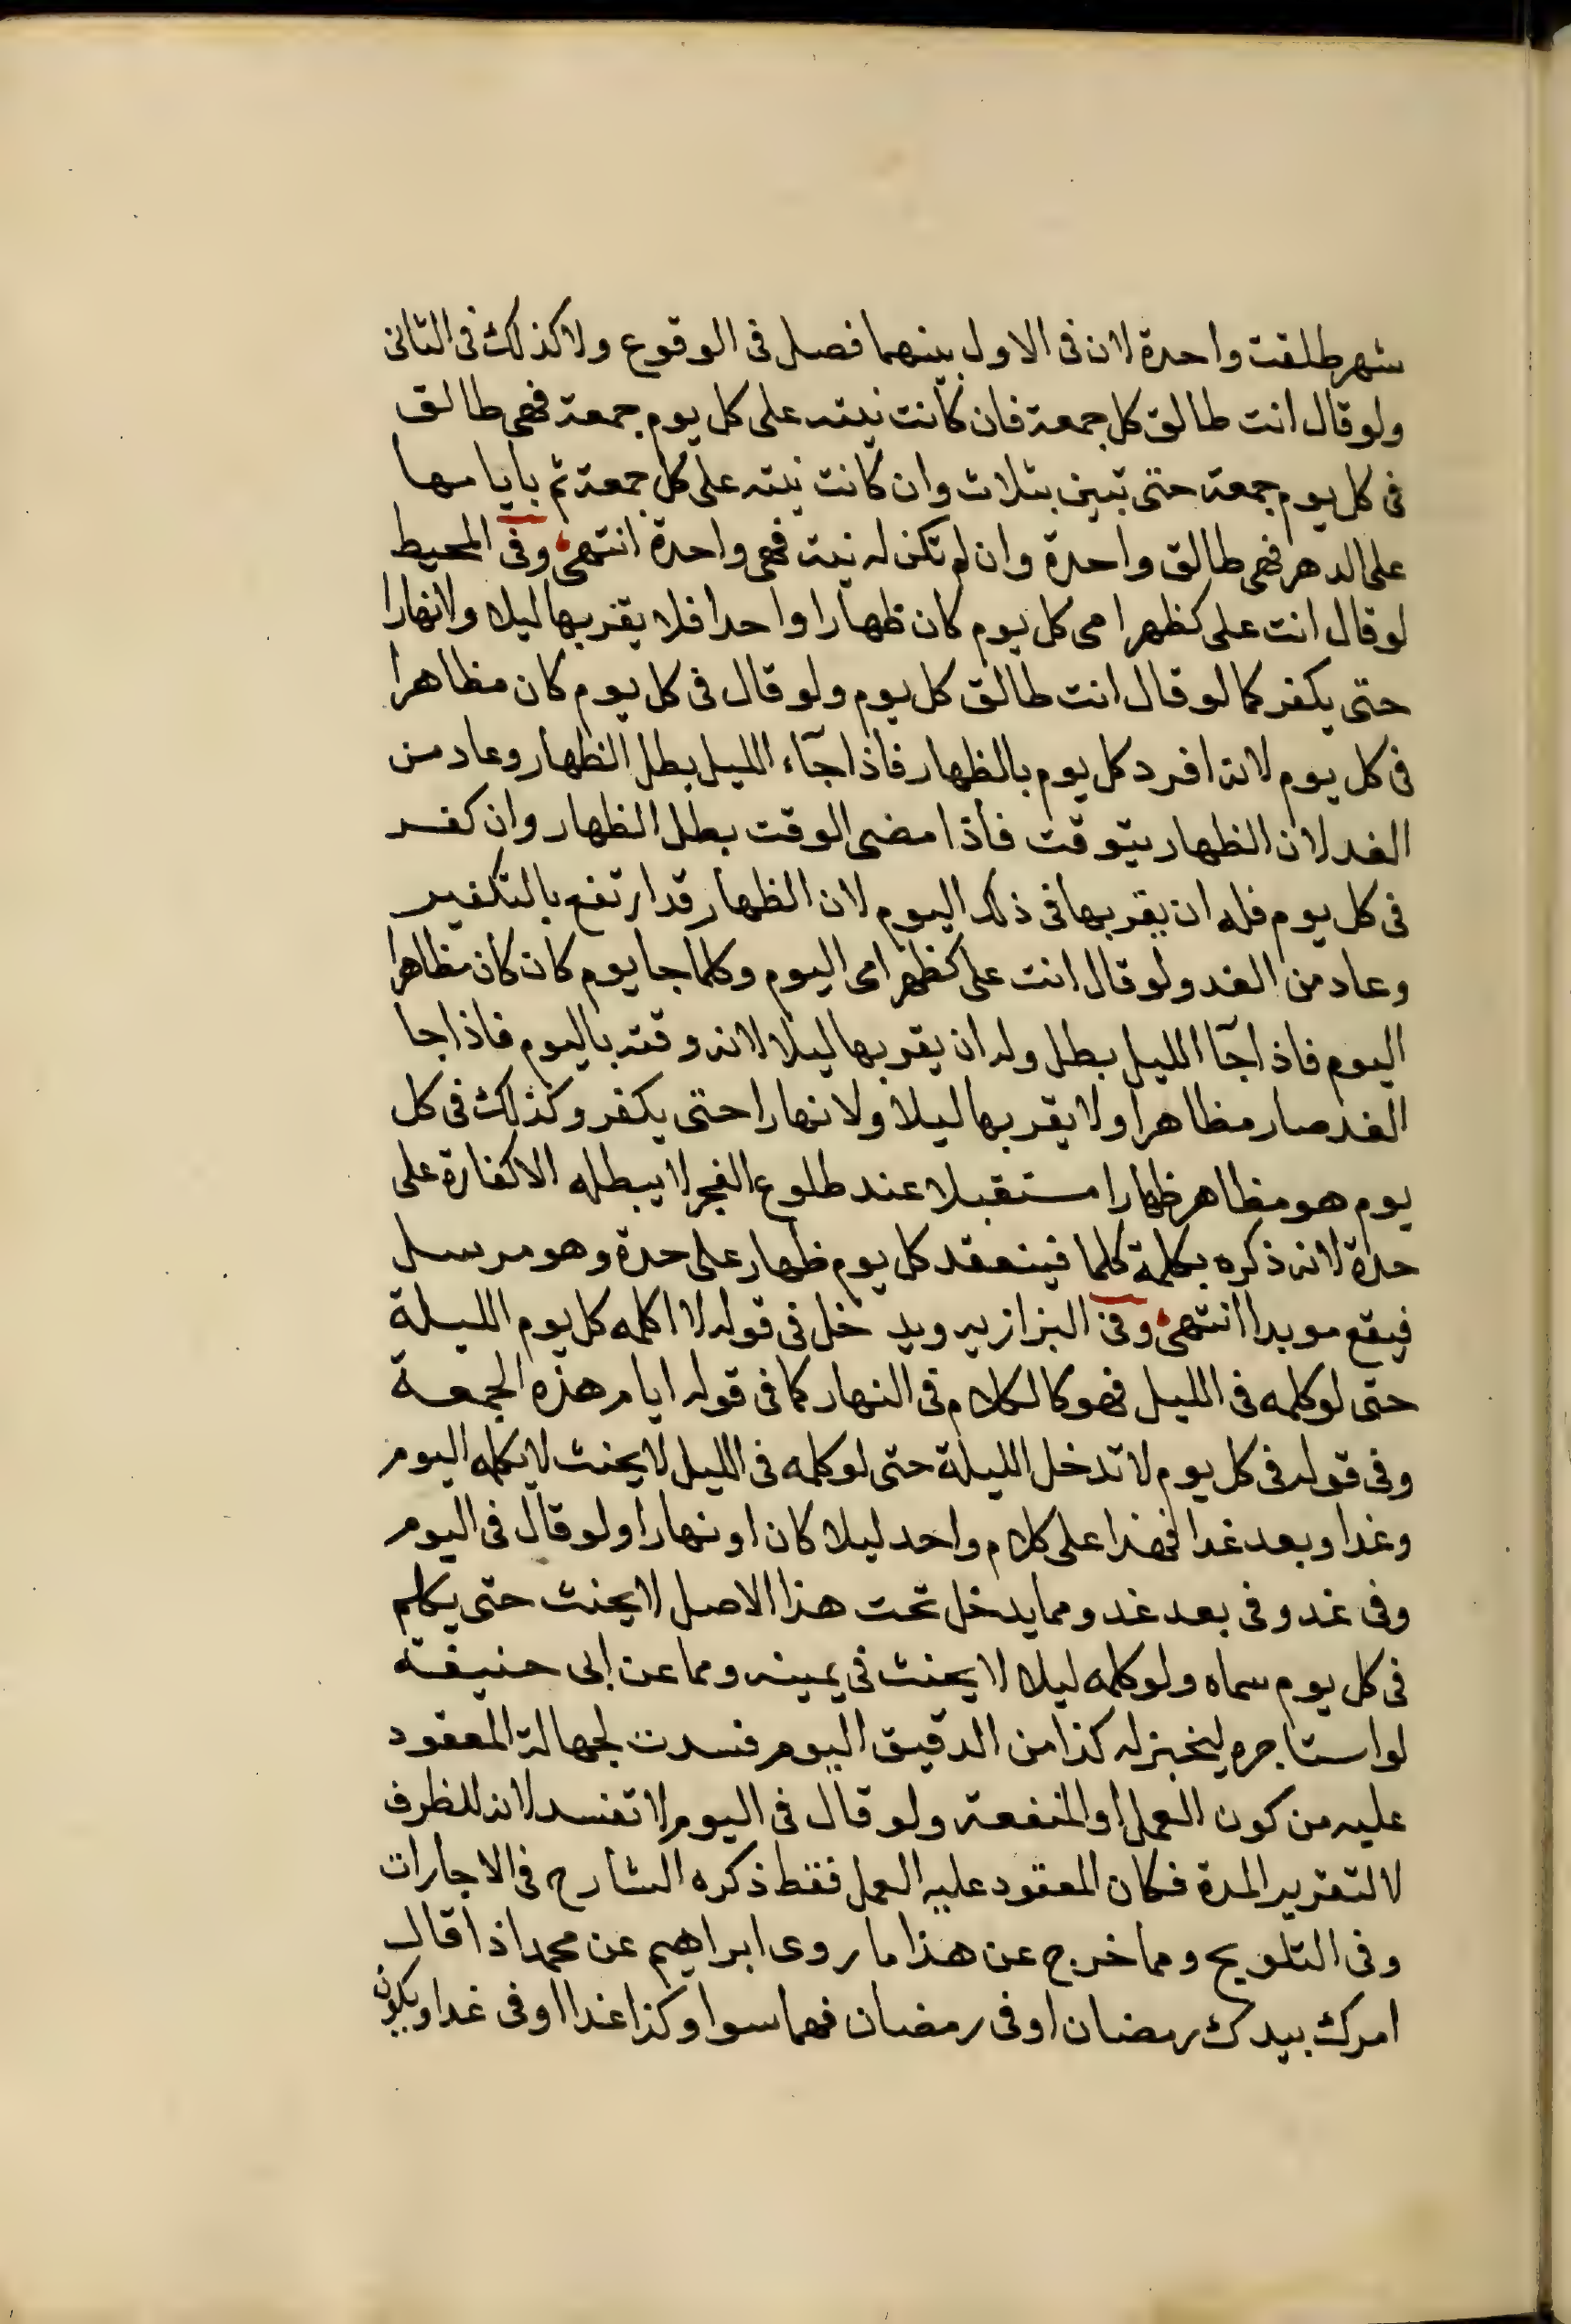 شهر طلقت واحدة لان فى الاول بينهما فصل فى الوقوع ولا كذلك فى الثانى
ولو قال انت طالق كل جمعة فان كانت نيته على كل يوم جمعة فهى طالق
فى كل يوم جمعة حتى تبين بثلاث وان كانت نيته على كل جمعة ثم بايامها
على الدهر فهى طالق واحدة وان لم تكن له نية فهى واحدة انتهى وفى المحيط
لو قال انت على كظهر امى كل يوم كان ظهارا واحدا فلا يقربها ليلا ولا نهارا
حتى يكفر كما لو قال انت طالق كل يوم ولو قال فى كل يوم كان مظاهرا
فى كل يوم لانه افرد كل يوم بالظهار فاذا جآء الليل بطل الظهار وعاد من
الغد لان الظهار يتوقت فاذا مضى الوقت بطل الظهار وان كفر
فى كل يوم فله ان يقربها فى ذلك اليوم لان الظهار قد ارتفع بالتكفير
وعاد من الغد ولو قال انت على كظهر امى اليوم وكلما جا يوم كان كان مظاهرا
اليوم فاذا جآ الليل بطل وله ان يقربها ليلا لانه وقته باليوم فاذا جا
الغد صار مظاهرا ولا يقربها ليلا ولا نهارا حتى يكفر وكذلك فى كل
يوم هو مظاهر ظهارا مستقبلا عند طلوع الفجر لا يبطله الا كفارة على
حدة لانه ذكره بكلمة كلما فينعقد كل يوم ظهار على حدة وهو مرسل
فيقع موبدا انتهى وفى البزازيه ويدخل فى قوله لا اكلمه كل يوم الليلة
حتى لو كلمه فى الليل فهو كالكلام فى النهار كما فى قوله ايام هذه الجمعة
وفى قوله فى كل يوم لا تدخل الليلة حتى لو كلمه فى الليل لا يحنث لا يكلمه اليوم
وغدا وبعد غدا فهذا على كلام واحد ليلا كان او نهارا ولو قال فى اليوم
وفى غد وفى بعد غد ومما يدخل تحت هذا الاصل لا يحنث حتى يكلم
فى كل يوم سماه ولو كلمه ليلا لا يحنث فى يمينه ومما عن ابى حنيفة
لو استاجره ليخبز له كذا من الدقيق اليوم فسدت لجهالة المعقود
عليه من كون العمل او المنفعة ولو قال فى اليوم لا تفسد لانه للظرف
لا لتقدير المدة فكان المعقود عليه العمل فقط ذكره الشارح فى الاجارات
وفى التلويح ومما خرج عن هذا ما روى ابراهيم عن محمد اذا قال
امرك بيدك رمضان او فى رمضان فهما سوا وكذا غدا او فى غد ويكون